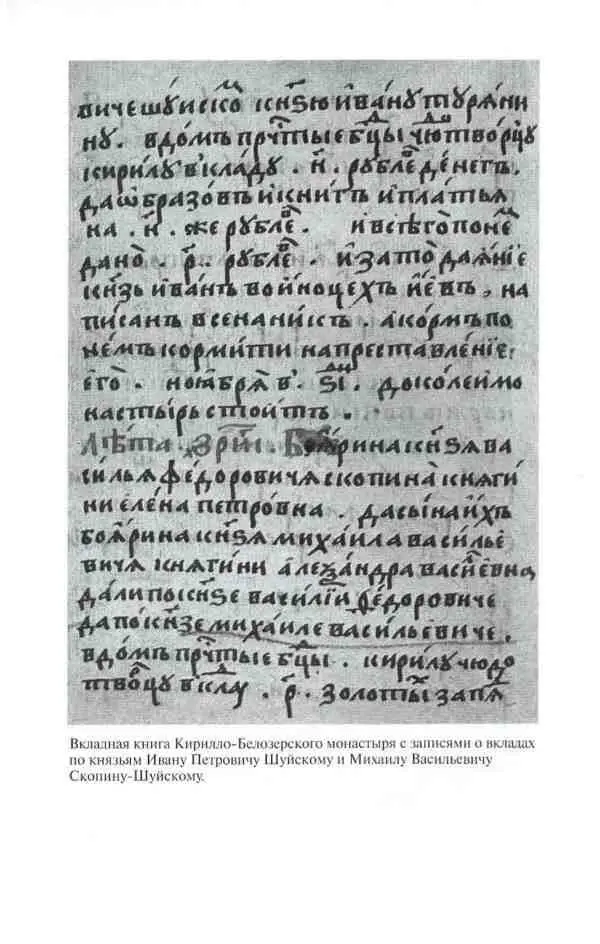 вичешуиско кнѕю ивану турѧни
ну. вдомъ прчтые бцы чютворцу
кирилу вкладу .н҃. рублев денегъ.
да ѡбразовъ и книгъ и платьѧ
на .н҃. же рублев. и всего по нем
дано .р҃. рублев. и за то даѧние
кнзь иванъ во иноцехъ иевъ, на
писанъ в сенаникъ. а кормъ по
немъ кормити на преставление
его. ноѧбрѧ в .ѕ҃і. доколе и мо
настырь стоитъ.
лѣта боѧрина кнѕѧ ва
сильѧ федоровичѧ скопина кнѧги
ни елена петровна. да сына ихъ
боѧрина кнѕѧ михаила василье
вичѧ кнѧгини алеѯандра васиевна
дали по кнѕе василии федоровиче
да по кнѕе михаиле васильевиче.
в домъ прчтые бцы. кирилу чюдо
творцу вклау .р҃. золотых запѧ
Вкладная книга Кирилло-Белозерского монастыря с записями о вкладах
по князьям Ивану Петровичу Шуйскому и Михаилу Васильевичу
Скопину-Шуйскому.